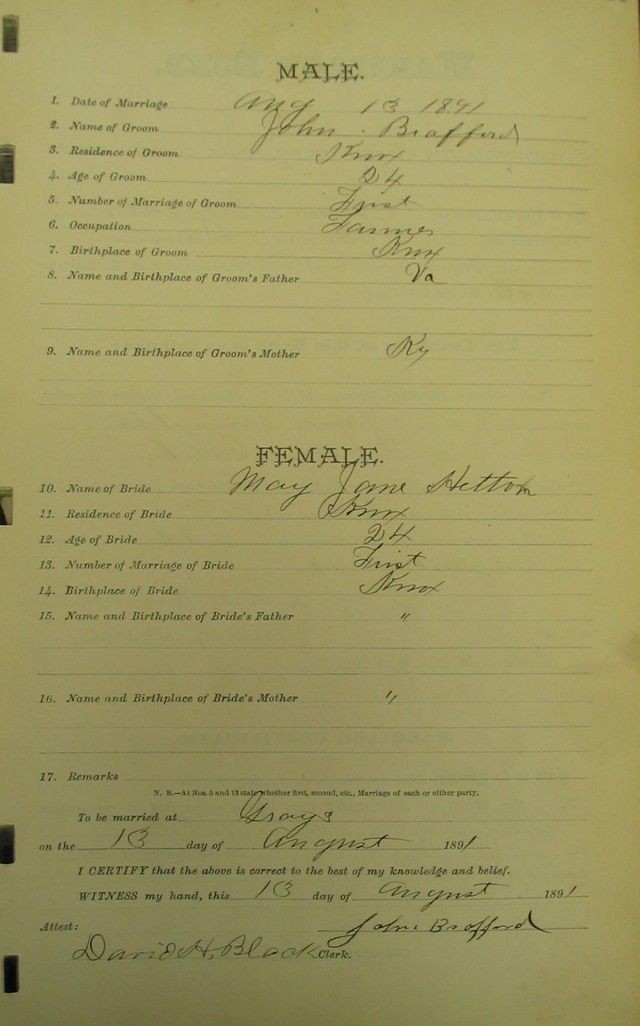 MALE.
1. Date of Marriage Aug 13 1891
2. Name of Groom John Brafford
3. Residence of Groom Knox
4. Age of Groom 24
5. Number of Marriage of Groom First
6. Occupation Farmer
7. Birthplace of Groom Knox
8. Name and Birthplace of Groom's Father Va
9. Name and Birthplace of Groom's Mother Ky
FEMALE.
10. Name of Bride May Jane Hetton
11. Residence of Bride Knox
12. Age of Bride 24
13. Number of Marriage of Bride First
14. Birthplace of Bride Knox
15. Name and Birthplace of Bride's Father "
16. Name and Birthplace of Bride's Mother "
17. Remarks
N. B.—At Nos. 5 and 13 state whether first, second, etc., Marriage of each or either party.
To be married at Grays
on the 13 day of August 1891
I CERTIFY that the above is correct to the best of my knowledge and belief.
WITNESS my hand, this 13 day of August 1891
Attest: John Brofford
David H. Black Clerk.